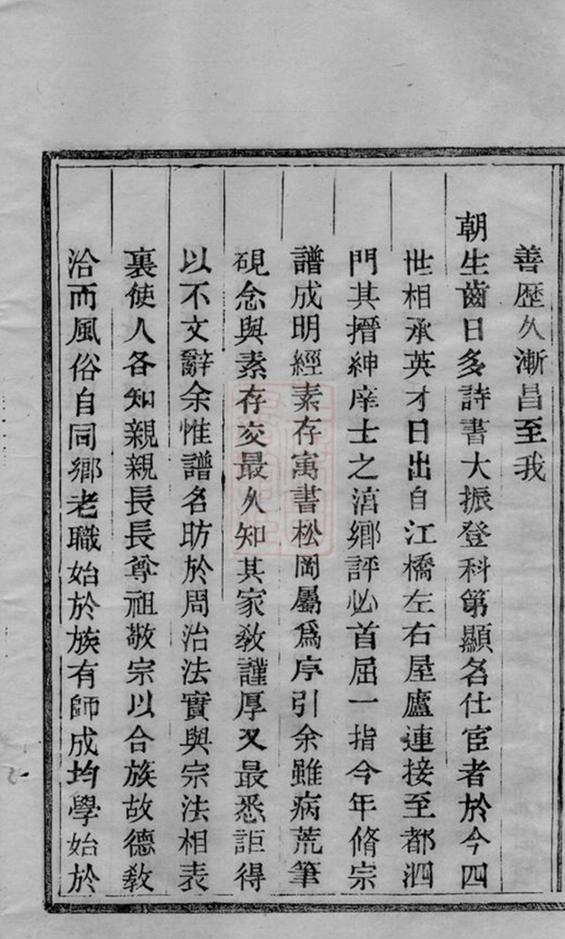 善歷久漸昌至我
朝生齒日多詩書大振登科第顯名仕宦者於今四
世相承英才日出自江橋左右屋廬連接至都泗
門其搢紳庠士之萬鄉評必首屈一指今年脩宗
譜成明經素存寓書松岡屬爲序引余雖病荒筆
硯念與素存交最久知其家敎謹厚又最悉詎得
以不文辭余惟譜名昉於周治法實與宗法相表
裏使人各知親親長長尊祖敬宗以合族故德敎
洽而風俗自同鄉老職始於族有師成均學始於